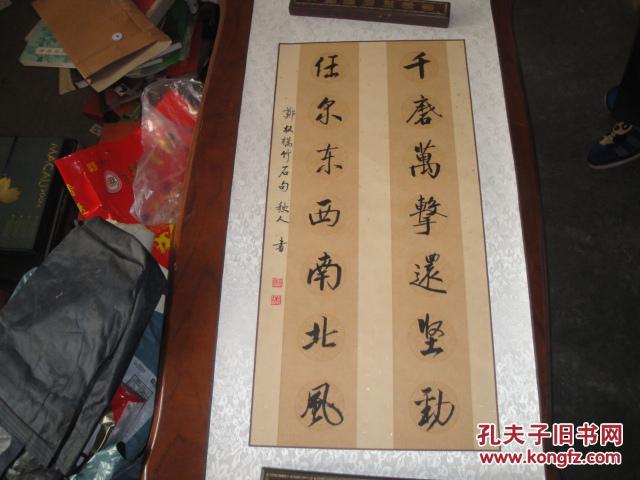 千磨萬擊還坚勁
任尔东西南北風
鄭板橋竹石句 秋人 書
孔夫子旧书网
www.kongfz.com